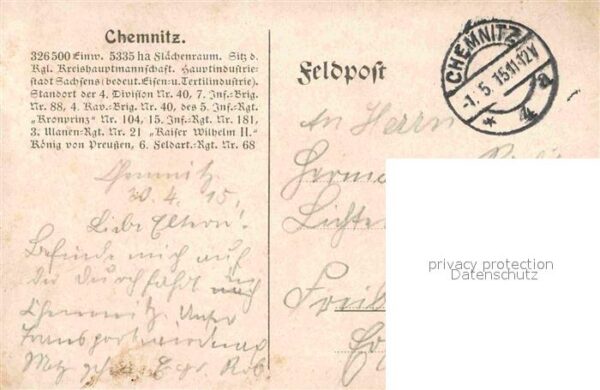 Chemnitz.
326500 Einw. 5335 ha Flächenraum. Sitz d.
Kgl. Kreishauptmannschaft. Hauptindustrie-
stadt Sachsens (bedeut. Eisen- u. Tertilindustrie).
Standort der 4. Division Nr. 40, 7. Inf.-Brig.
Nr. 88, 4. Kav.-Brig. Nr. 40, des 5. Inf.-Rgt.
"Kronprinz" Nr. 104, 15. Inf.-Rgt. Nr. 181,
3. Ulanen-Rgt. Nr. 21 "Kaiser Wilhelm II."
König von Preußen, 6. Feldart.-Rgt. Nr. 68
Chemnitz
30.4.15.
Liebe Eltern!
Befinde mich auf
der Durchfahrt
Chemnitz. Unser
Transport
Metz
Feldpost
CHEMNITZ
-1.5 15.11-12V
* 4 a
An Herrn
Herma
Lichte
Freib
privacy protection
Datenschutz